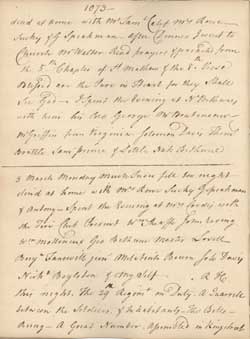 1073
dined at home with Mr Saml Calef Mrs Rowe
Sucky & G Speakman after Dinner I went to
Church Mr Walter Read prayers & preached from
the 5th Chapter of St Mathew & the 8th Verse
Blessed are the Pure in Heart for they Shall
See God I Spent the Evening at
with him his Geo George
Mr Griffin from Virginia Solomon Davis Thos
Brattle Saml prince & Nat Bethune
5 March Monday Much Snow fell last night
dined at home with Mrs Rowe Sucky G Speakman
& Antony Spent the Evening at Mrs Cordis with
the Fire Club Present Wm
Wm Molineux Geo Bethune Master Lovell
Benj Faneuil junr Ambrose Vincent Job Davis
Nichs Boylston & My Self
this night The 29th Regimt on Duty A Quarrell
between the Soldiers & Inhabitants The Bells
Rung A Great Number Assembled in Kingstreet